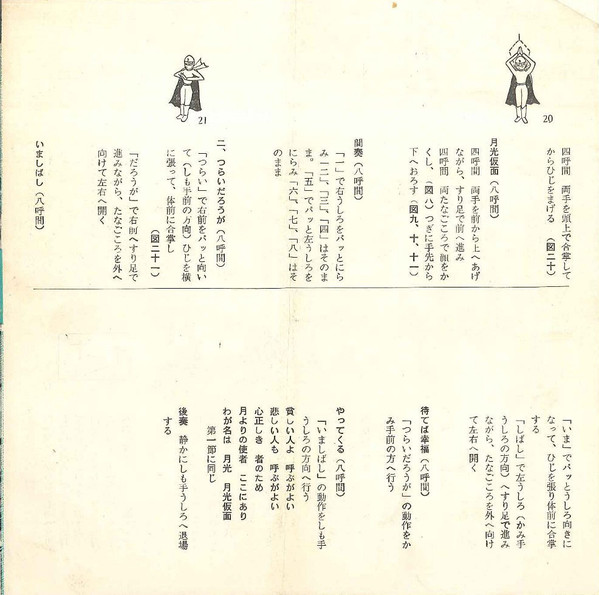 20
四呼間 両手を頭上で合掌して
からひじをまげる (図二十)
月光仮面(八呼間)
四呼間 両手を前から上へあげ
ながら、すり足で前へ進み
四呼間 両たなごころで顔をか
くし、(図八)つぎに手先から
下へおろす(図九、十、十一)
間奏(八呼間)
「一」で右うしろをパッとにら
み一二、「三」、「四」はそのま
ま。「五」でパッと左うしろを
にらみ「六」、「七」、「八」はそ
のまま
21
二、つらいだろうが(八呼間)
「つらい」で右前をパッと向い
て(しも手前の方向)ひじを横
に張って、体前に合掌し
(図二十一)
「だろうが」で右前へすり足で
進みながら、たなごころを外へ
向けて左右へ開く
いましばし(八呼間)
「いま」でパッとうしろ向きに
なって、ひじを張り体前に合掌
する
「しばし」で左うしろ(かみ手
うしろの方向)へすり足で進み
ながら、たなごころを外へ向け
て左右へ開く
待てば幸福(八呼間)
「つらいだろうが」の動作をか
み手前の方へ行う
やってくる(八呼間)
「いましばし」の動作をしも手
うしろの方向へ行う
貧しい人よ 呼ぶがよい
悲しい人も 呼ぶがよい
心正しき 者のため
月よりの使者 ここにあり
わが名は 月光 月光仮面
第一節に同じ
後奏 静かにしも手うしろへ退場
する